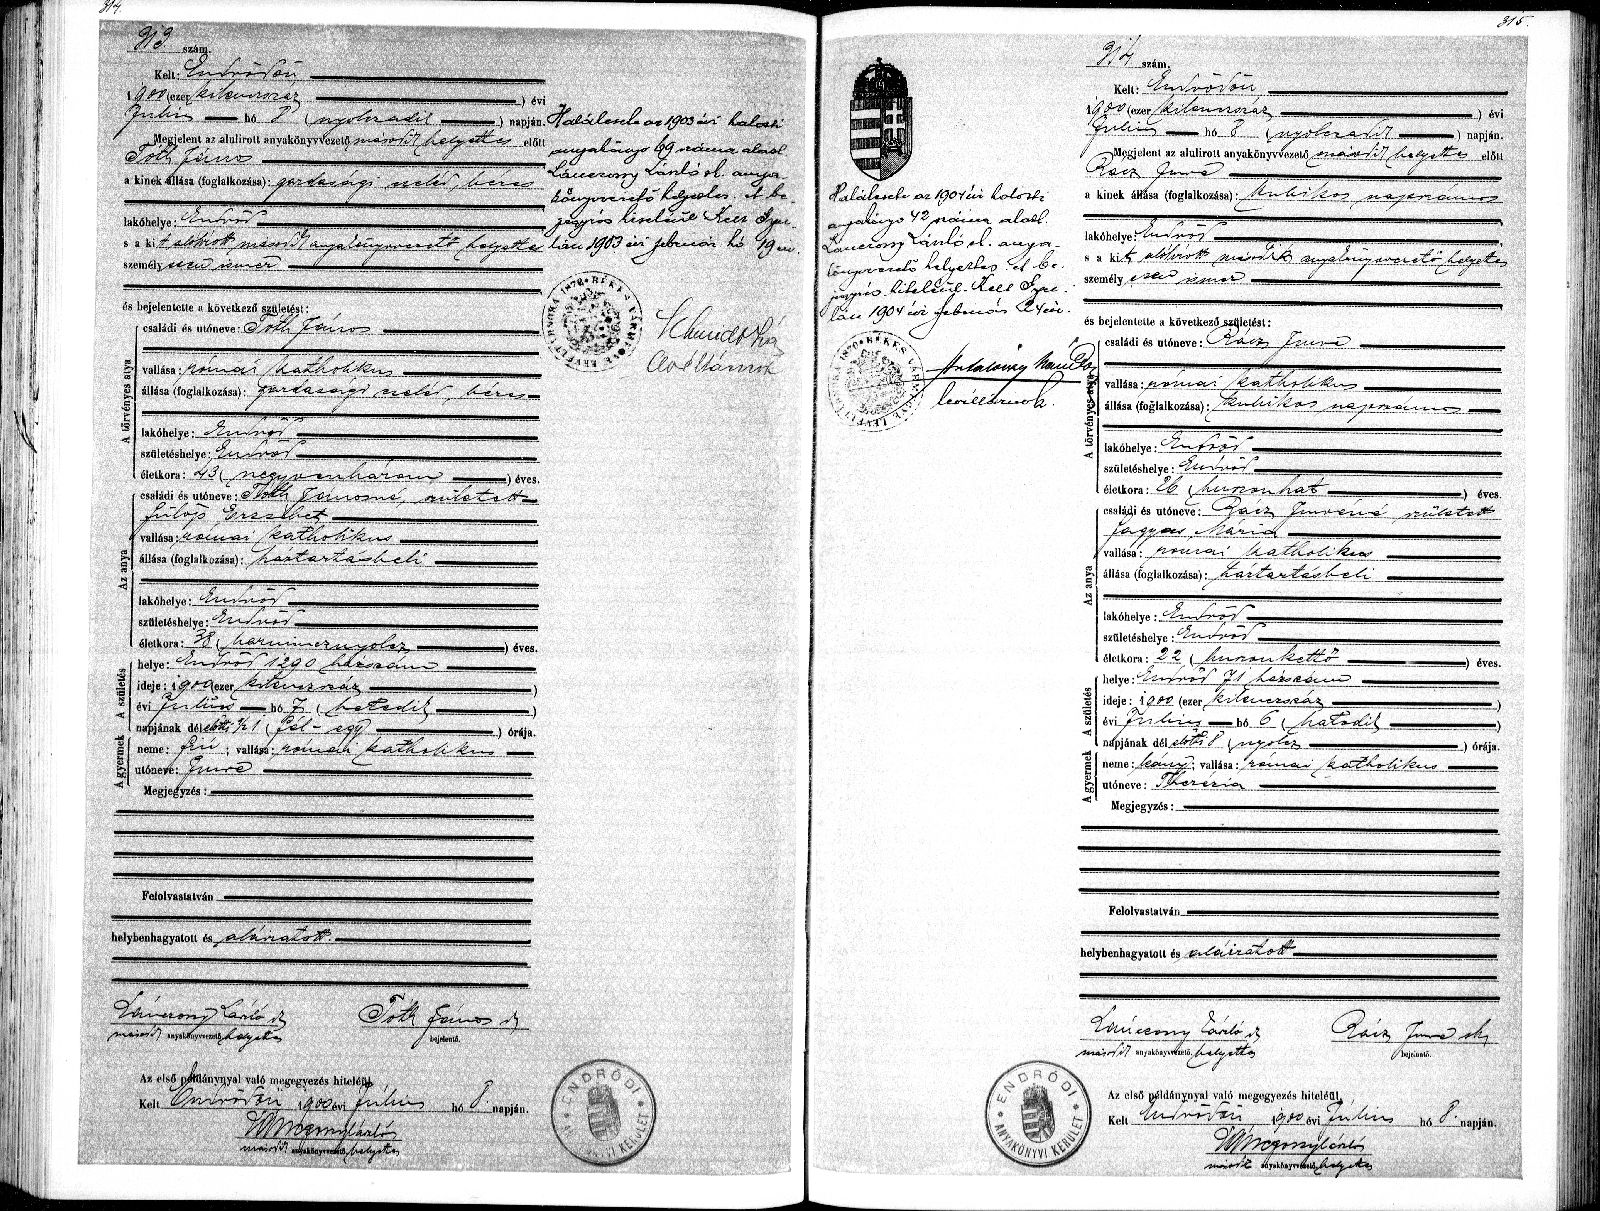 314.
313. szám.
Kelt: Endrődön
1900 (ezer kilencszáz ) évi
Július hó 8 (nyolczadik ) napján.
Megjelent az alulirott anyakönyvvezető másodk helyettes előtt
Tóth János
a kinek állása (foglalkozása): gazdasági cseléd, béres
lakóhelye: Endrőd
s a kit alólirott másodk anyakönyvvezető helyettes
személyesen ismer
és bejelentette a következő születést:
A törvényes atya
családi és utóneve: Tóth János
vallása: római katholikus
állása (foglalkozása): gazdasági cseléd, béres
lakóhelye: Endrőd
születéshelye: Endrőd
életkora: 43 (negyvenhárom ) éves.
Az anya
családi és utóneve: Tóth Jánosné, született
Fülöp Erzsébet
vallása: római katholikus
állása (foglalkozása): háztartásbeli
lakóhelye: Endrőd
születéshelye: Endrőd
életkora: 38 (harmincznyolcz ) éves.
A születés
helye: Endrőd 1290 házszám
ideje: 1900 (ezer kilenczszáz )
évi Július hó 7 (hetedik )
napjának délelőtti ½1 (fél-egy ) órája.
A gyermek
neme: fiú; vallása: római katholikus
utóneve: Imre
Megjegyzés:
Felolvastatván
helybenhagyatott és aláiratott.
Lánczony László sk Tóth János sk
másodk anyakönyvvezető helyettes bejelentő.
Az első példánynyal való megegyezés hiteléül.
Kelt Endrődön 1900 évi Július hó 8. napján.
Lánczony László
másodk anyakönyvvezető helyettes
ENDRŐDI ANYAKÖNYVI KERÜLET
Halálesete az 1903 évi halotti
anyakönyv 99 száma alatt
Lánczony László sk. anya-
könyvvezető helyettes. A be-
jegyzés hiteléül Kelt Gyu-
lán 1903 évi február hó 19 én.
BÉKÉS VÁRMEGYE LEVÉLTÁRNOKA 1870
levéltárnok
315.
314 szám.
Kelt: Endrődön
1900 (ezer kilenczszáz ) évi
Július hó 8 (nyolczadik ) napján.
Megjelent az alulirott anyakönyvvezető másodk helyettes előtt
Rácz Imre
a kinek állása (foglalkozása): kubikos napszámos
lakóhelye: Endrőd
s a kit alólirott másodk anyakönyvvezető helyettes
személyesen ismer
és bejelentette a következő születést:
A törvényes atya
családi és utóneve: Rácz Imre
vallása: római katholikus
állása (foglalkozása): kubikos napszámos
lakóhelye: Endrőd
születéshelye: Endrőd
életkora: 26 (huszonhat ) éves.
Az anya
családi és utóneve: Rácz Imréné született
Fagyas Mária
vallása: római katholikus
állása (foglalkozása): háztartásbeli
lakóhelye: Endrőd
születéshelye: Endrőd
életkora: 22 (huszonkettő ) éves.
A születés
helye: Endrőd 71 házszám
ideje: 1900 (ezer kilenczszáz )
évi Július hó 6 (hatodik )
napjának délelőtti 8 (nyolcz ) órája.
A gyermek
neme: leány; vallása: római katholikus
utóneve: Therézia
Megjegyzés:
Felolvastatván
helybenhagyatott és aláiratott
Lánczony László sk Rácz Imre sk
másodk anyakönyvvezető helyettes bejelentő.
Az első példánynyal való megegyezés hiteléül.
Kelt Endrődön 1900 évi Július hó 8. napján.
Lánczony László
másodk anyakönyvvezető helyettes
ENDRŐDI ANYAKÖNYVI KERÜLET
Halálesete az 1904 évi halotti
anyakönyv 42 száma alatt
Lánczony László sk. anya-
könyvvezető helyettes. A be-
jegyzés hiteléül. Kelt Gyu-
lán 1904 évi február 24 én.
BÉKÉS VÁRMEGYE LEVÉLTÁRNOKA 1870
levéltárnok.